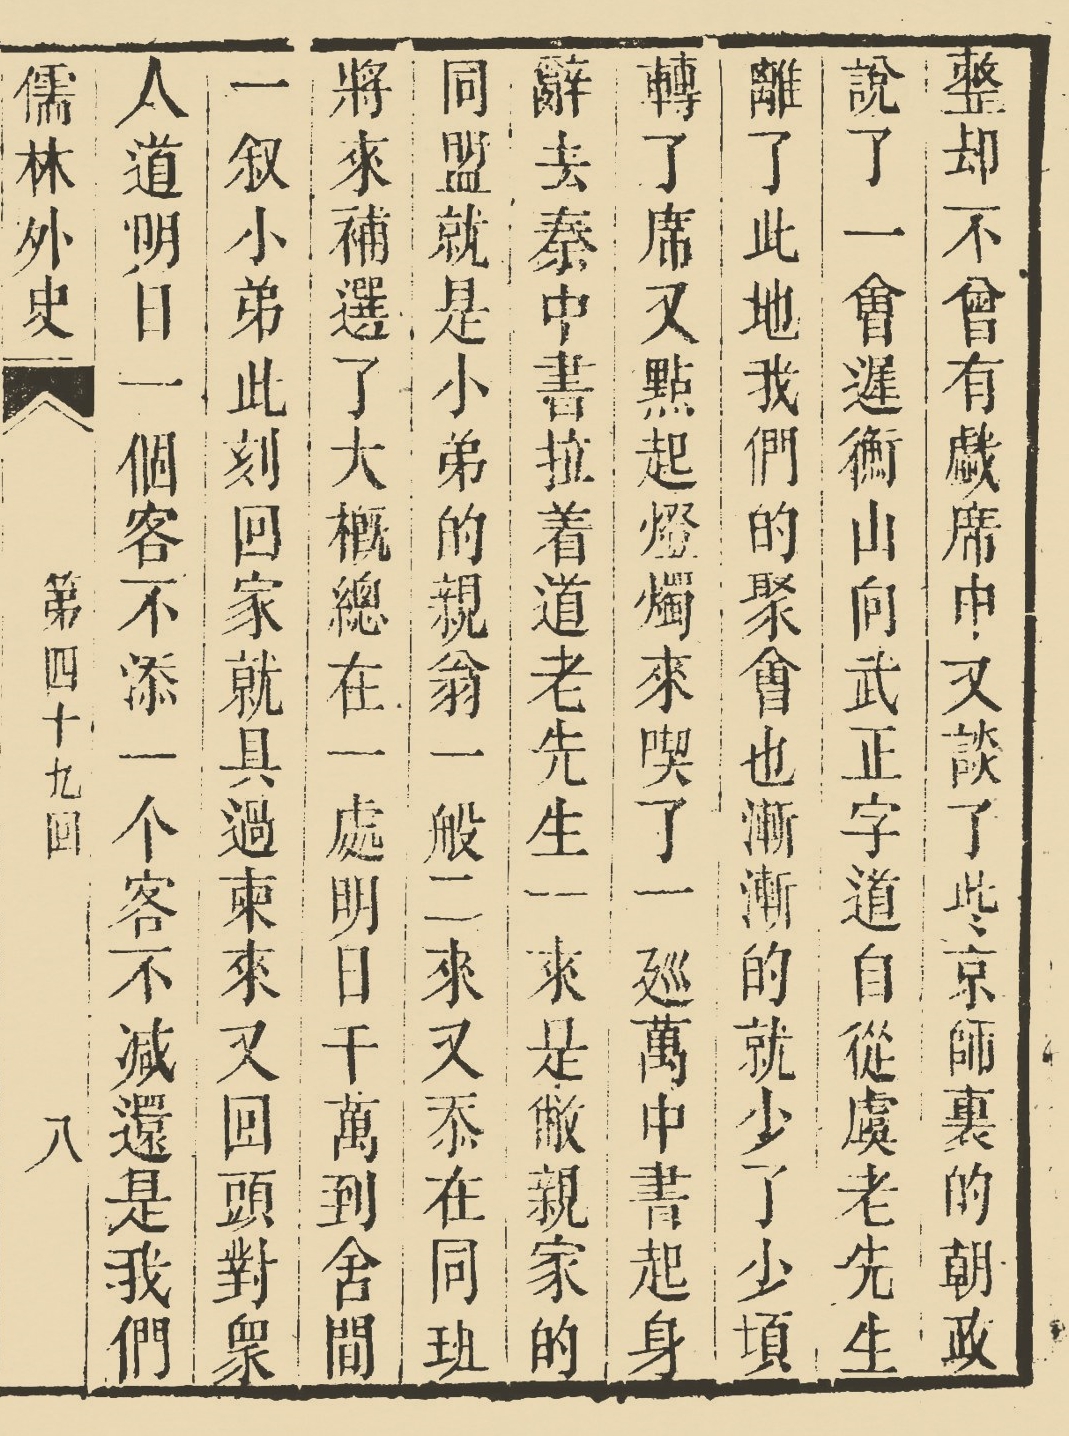 整却不曾有戲席中又談了些京師裏的朝政
說了一會遲衡山向武正字道自從虞老先生
離了此地我們的聚會也漸漸的就少了少頃
轉了席又點起燈燭來喫了一廵萬中書起身
辭去秦中書拉着道老先生一來是敝親家的
同盟就是小弟的親翁一般二來又忝在同班
將來補選了大概總在一處明日千萬到舍間
一叙小弟此刻回家就具過柬來又回頭對衆
人道明日一個客不添一个客不減還是我們
儒林外史
第四十九回
八